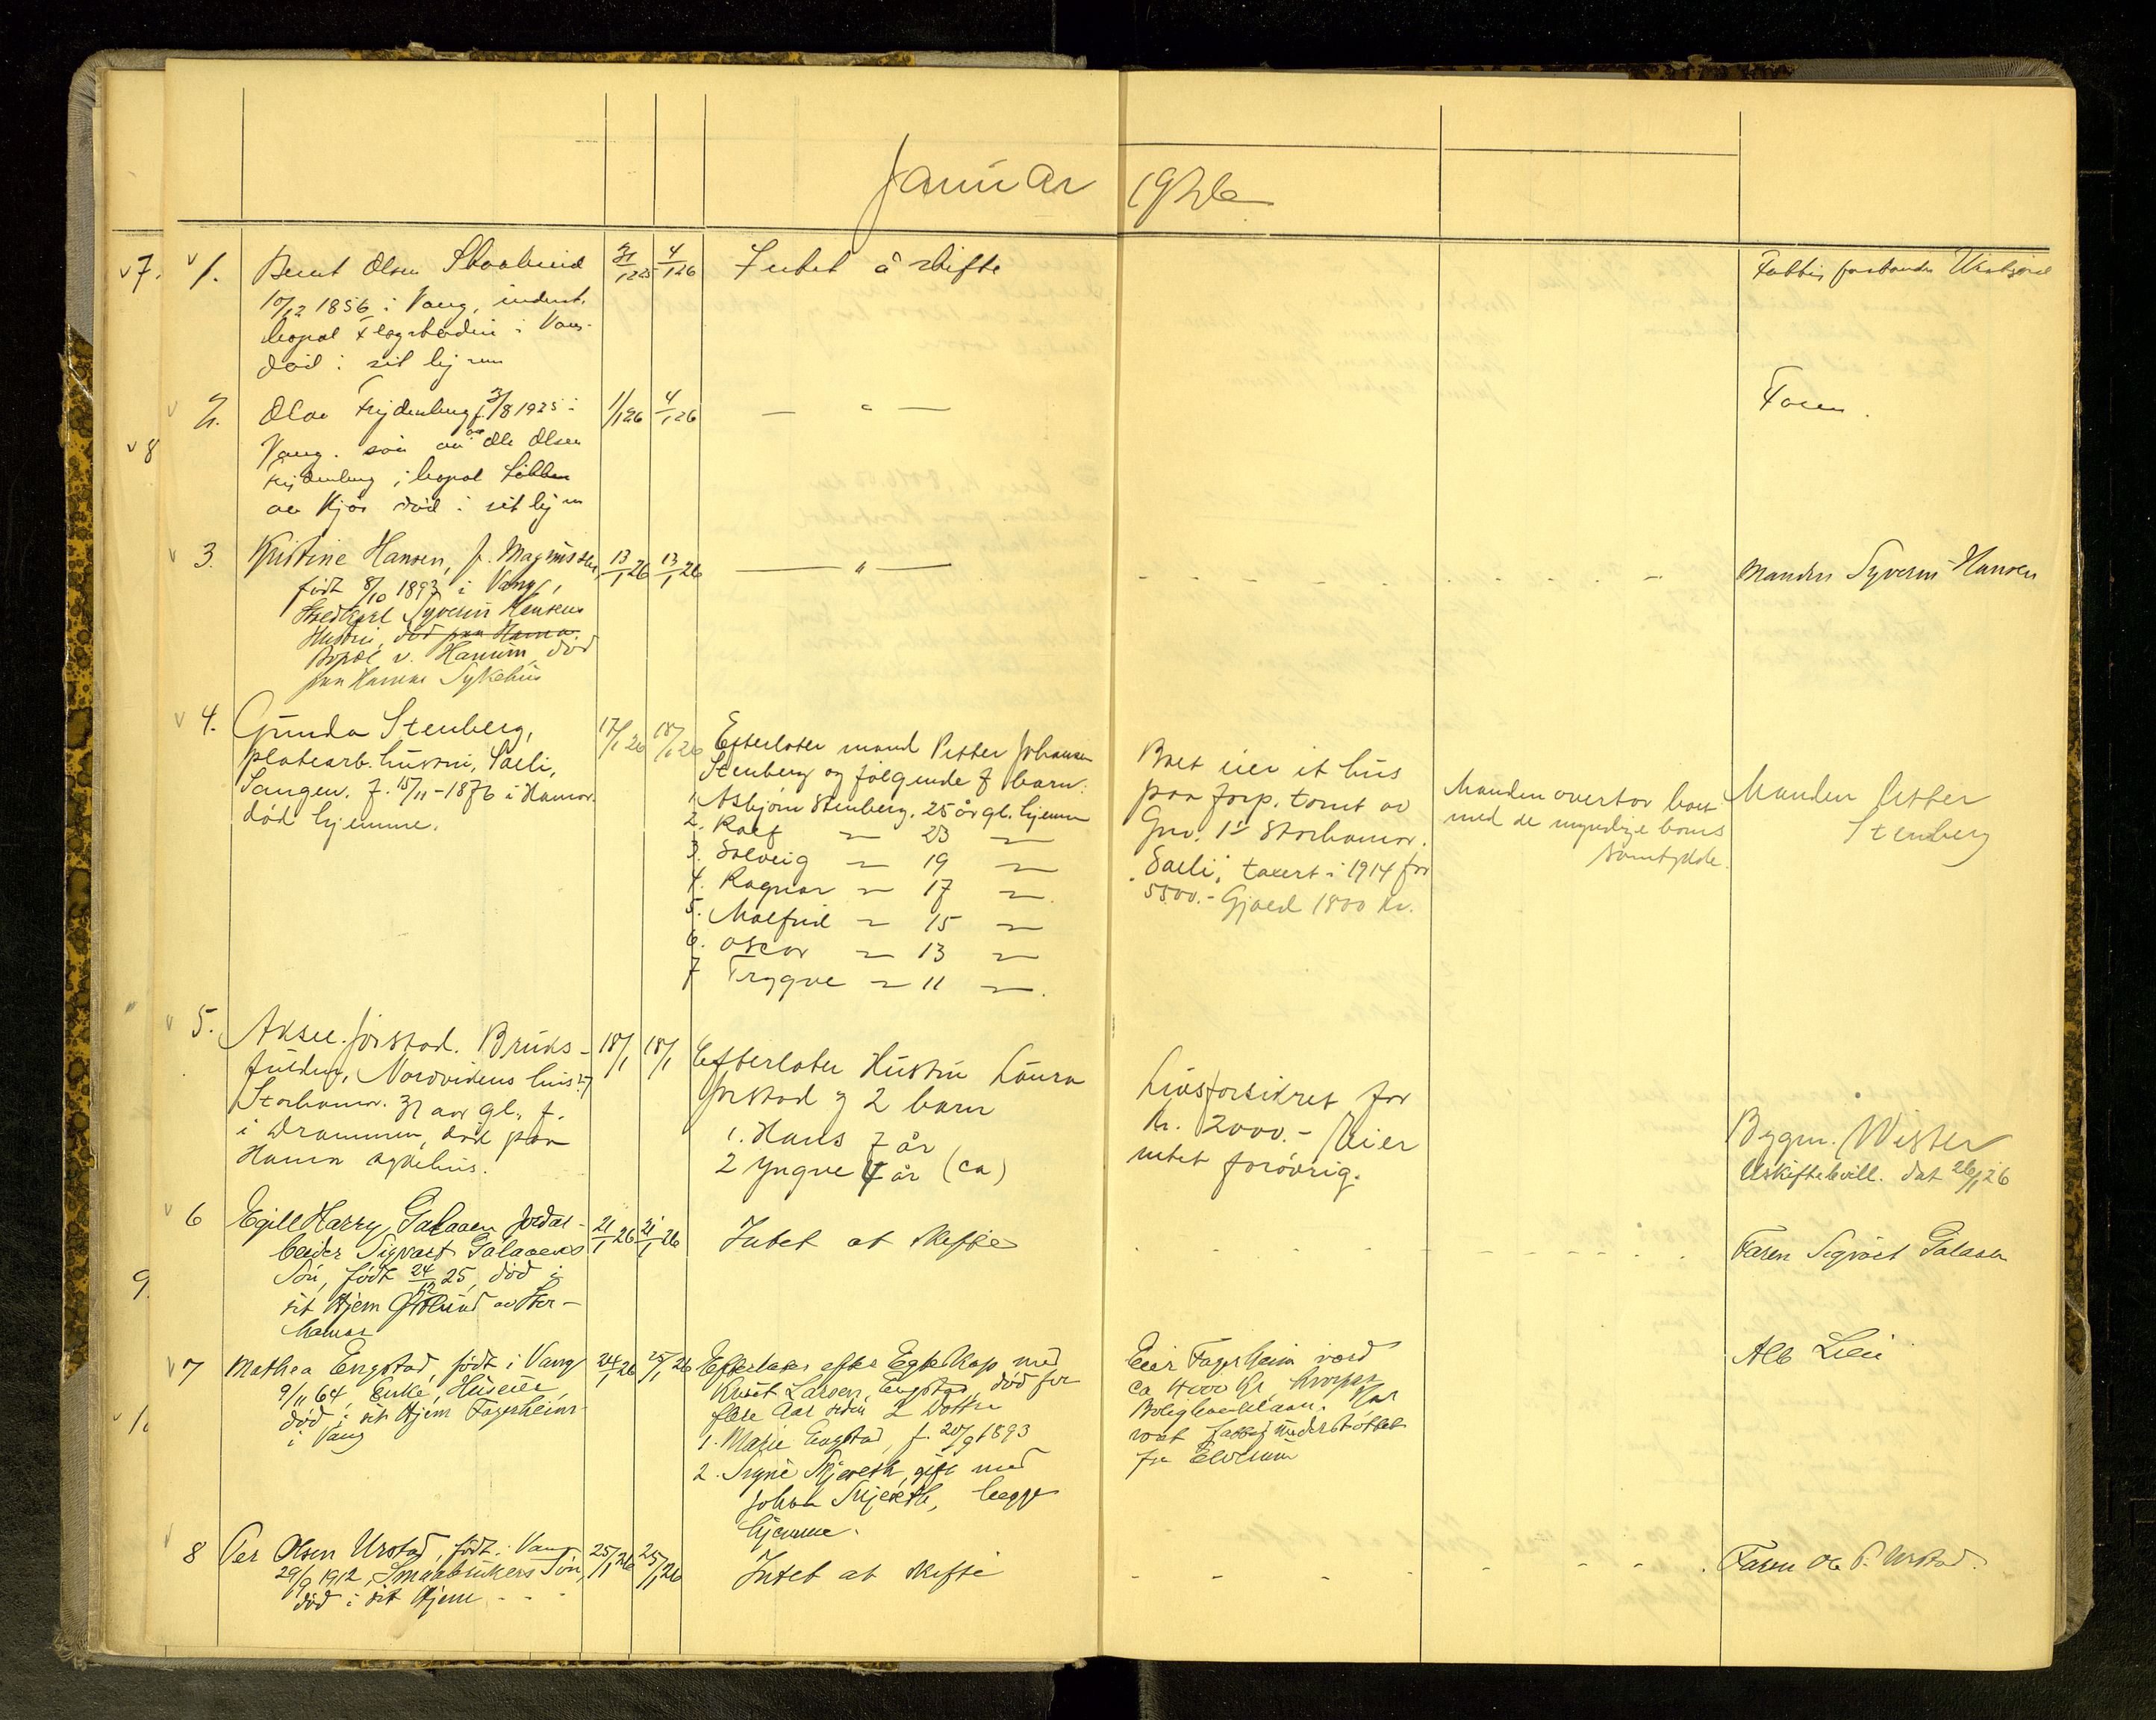 Januar 1926
7. 1. Bernt Olsen
31/12 25 4/1 26
Intet å skifte
10/12 1856 i Vang, inderst.
bopæl i Vang
død i sit hjem
2. Olav Frydenberg f. 31/8 1925 i
1/1 26 4/1 26
— " —
Faren.
8
Vang. søn av Ole Olsen
Frydenberg, bopæl
av død i sit hjem
3. Kristine Hansen, f. Magnussen,
13/1 26 13/1 26
— " —
Manden Syverin Hansen
født 8/10 1893 i Vang,
Syverin Hansens
Hustru, død paa Hamar.
Bopæl v. Hamar, død
paa Hamar Sykehus
4. Gunda Stenberg,
platearb. hustru, Sæli,
Vangen. f. 15/11-1876 i Hamar.
død hjemme.
17/1 26 18/1 26
Efterlater mand Petter Johansen
Stenberg og følgende 7 barn:
1. Asbjørn Stenberg. 25 år gl. hjemme
2. Rolf — 23 —
3. Solveig — 19 —
4. Ragnar — 17 —
5. Malfrid — 15 —
6. Oscar — 13 —
7 Trygve — 11 —
Boet eier et hus
paa forp. tomt av
Gnr. 1 Storhamar.
Sæli, taxert i 1914 for
5500.- Gjæld 1800 kr.
Manden overtar boet
med de myndige barns
samtykke.
Manden Petter
Stenberg
5. Aksel Jørstad. Bruks-
fuldm., Nordvidens hus
Storhamar. 31 aar gl. f.
i Drammen, død paa
Hamar sykehus.
18/1 18/1
Efterlater Hustru Laura
Jørstad og 2 barn
1. Hans 7 år
2 Yngve 4 år (ca)
Livsforsikret for
Kr. 2000.- Eier
intet forøvrig.
Bygm. Wister
Uskiftebevill. dat 26/1 26
6 Egill Harry Galaaen Jordar-
beider Sigvart Galaaens
Søn, født 24/12 25, død i
sit Hjem Østlund av Stor-
hamar
21/1 26 21/1 26
Intet at skifte
Faren Sigvart Galaaen
9.
7 Mathea Engstad, født i Vang
9/11 64, Enke, Huseier,
død i sit Hjem Fagerheim
i Vang
24/1 26 25/1 26
Efterlater efter Egteskap med
Larsen Engstad, død for
flere Aar siden 2 Døttre
1. Marie Engstad, f. 20/9 1893
2. Signe Skjeseth, gift med
Johan Skjeseth, begge
hjemme.
Eier Fagerheim værd
ca 4000 Kr,
Boliglaan. Har
været fattig understøttet
fra Elverum
Alb Lien
8 Per Olsen Urstad, født i Vang
29/9 1912, Smaabrukers Søn,
død i sit Hjem
25/1 26 25/1 26
Intet at skifte
Faren Ole P. Urstad.